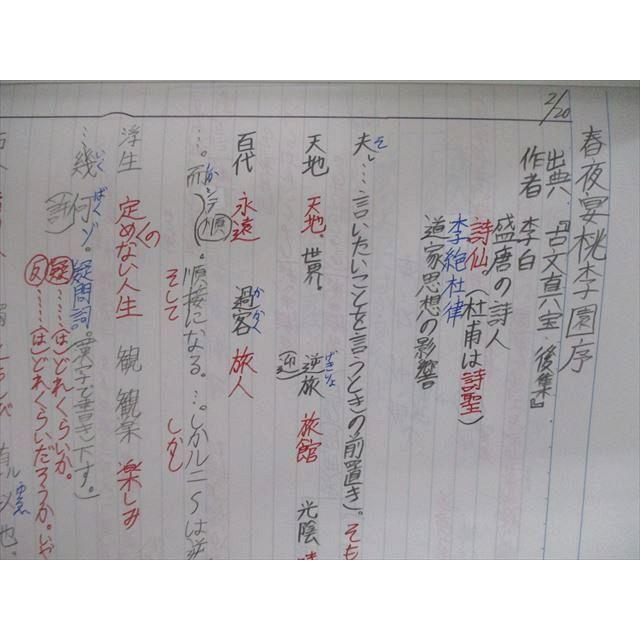 2/20
春夜宴桃李園序
出典『古文真宝後集』
作者 李白
盛唐の詩人
詩仙(杜甫は詩聖)
李絶杜律
道家思想の影響
夫レ…言いたいことを言うときの前置き)。そも
天地 天地、世界 逆旅 旅館 光陰
百代 永遠 過客 旅人
…。而シテ(順)。順接になる。…。しかルニ〜は逆
そして しかし
浮生 定めのない人生 観 観楽 楽しみ
…幾何ゾ。疑問詞。(漢字で書き下す。)
疑……(は)どれくらいか。
反……(は)どれくらいだろうか。いや